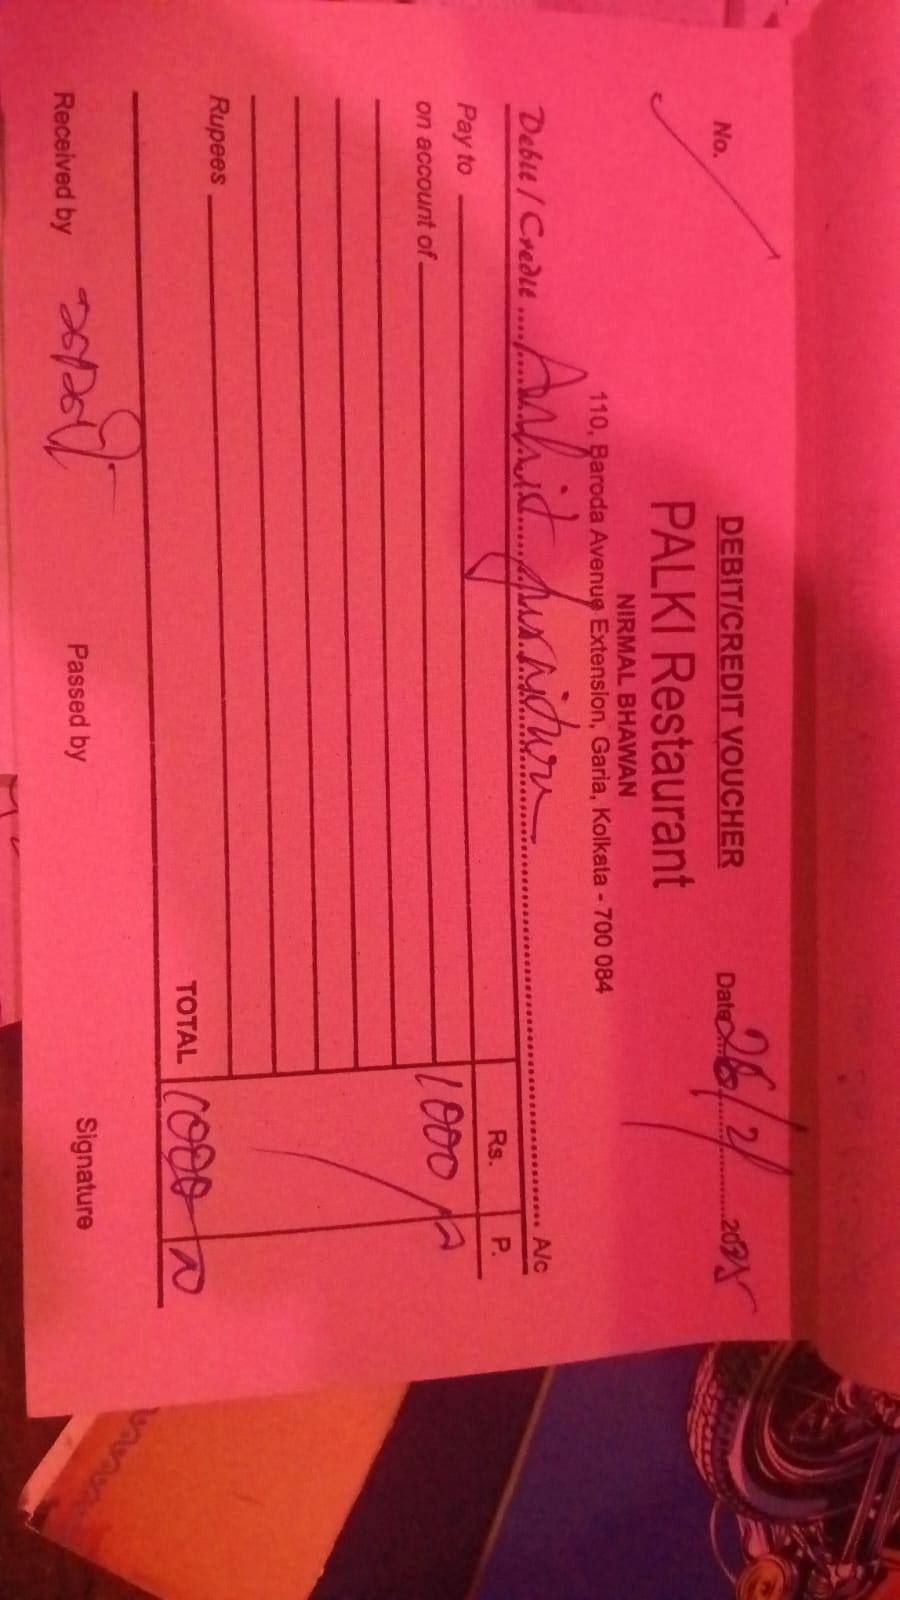 DEBIT/CREDIT VOUCHER
No. Date 28/2/2025
PALKI Restaurant
NIRMAL BHAWAN
110, Baroda Avenue Extension, Garia, Kolkata - 700 084
Debit / Credit furniture A/c
Rs. P.
Pay to
on account of 1000/-
Rupees
TOTAL 1000
Received by Passed by Signature